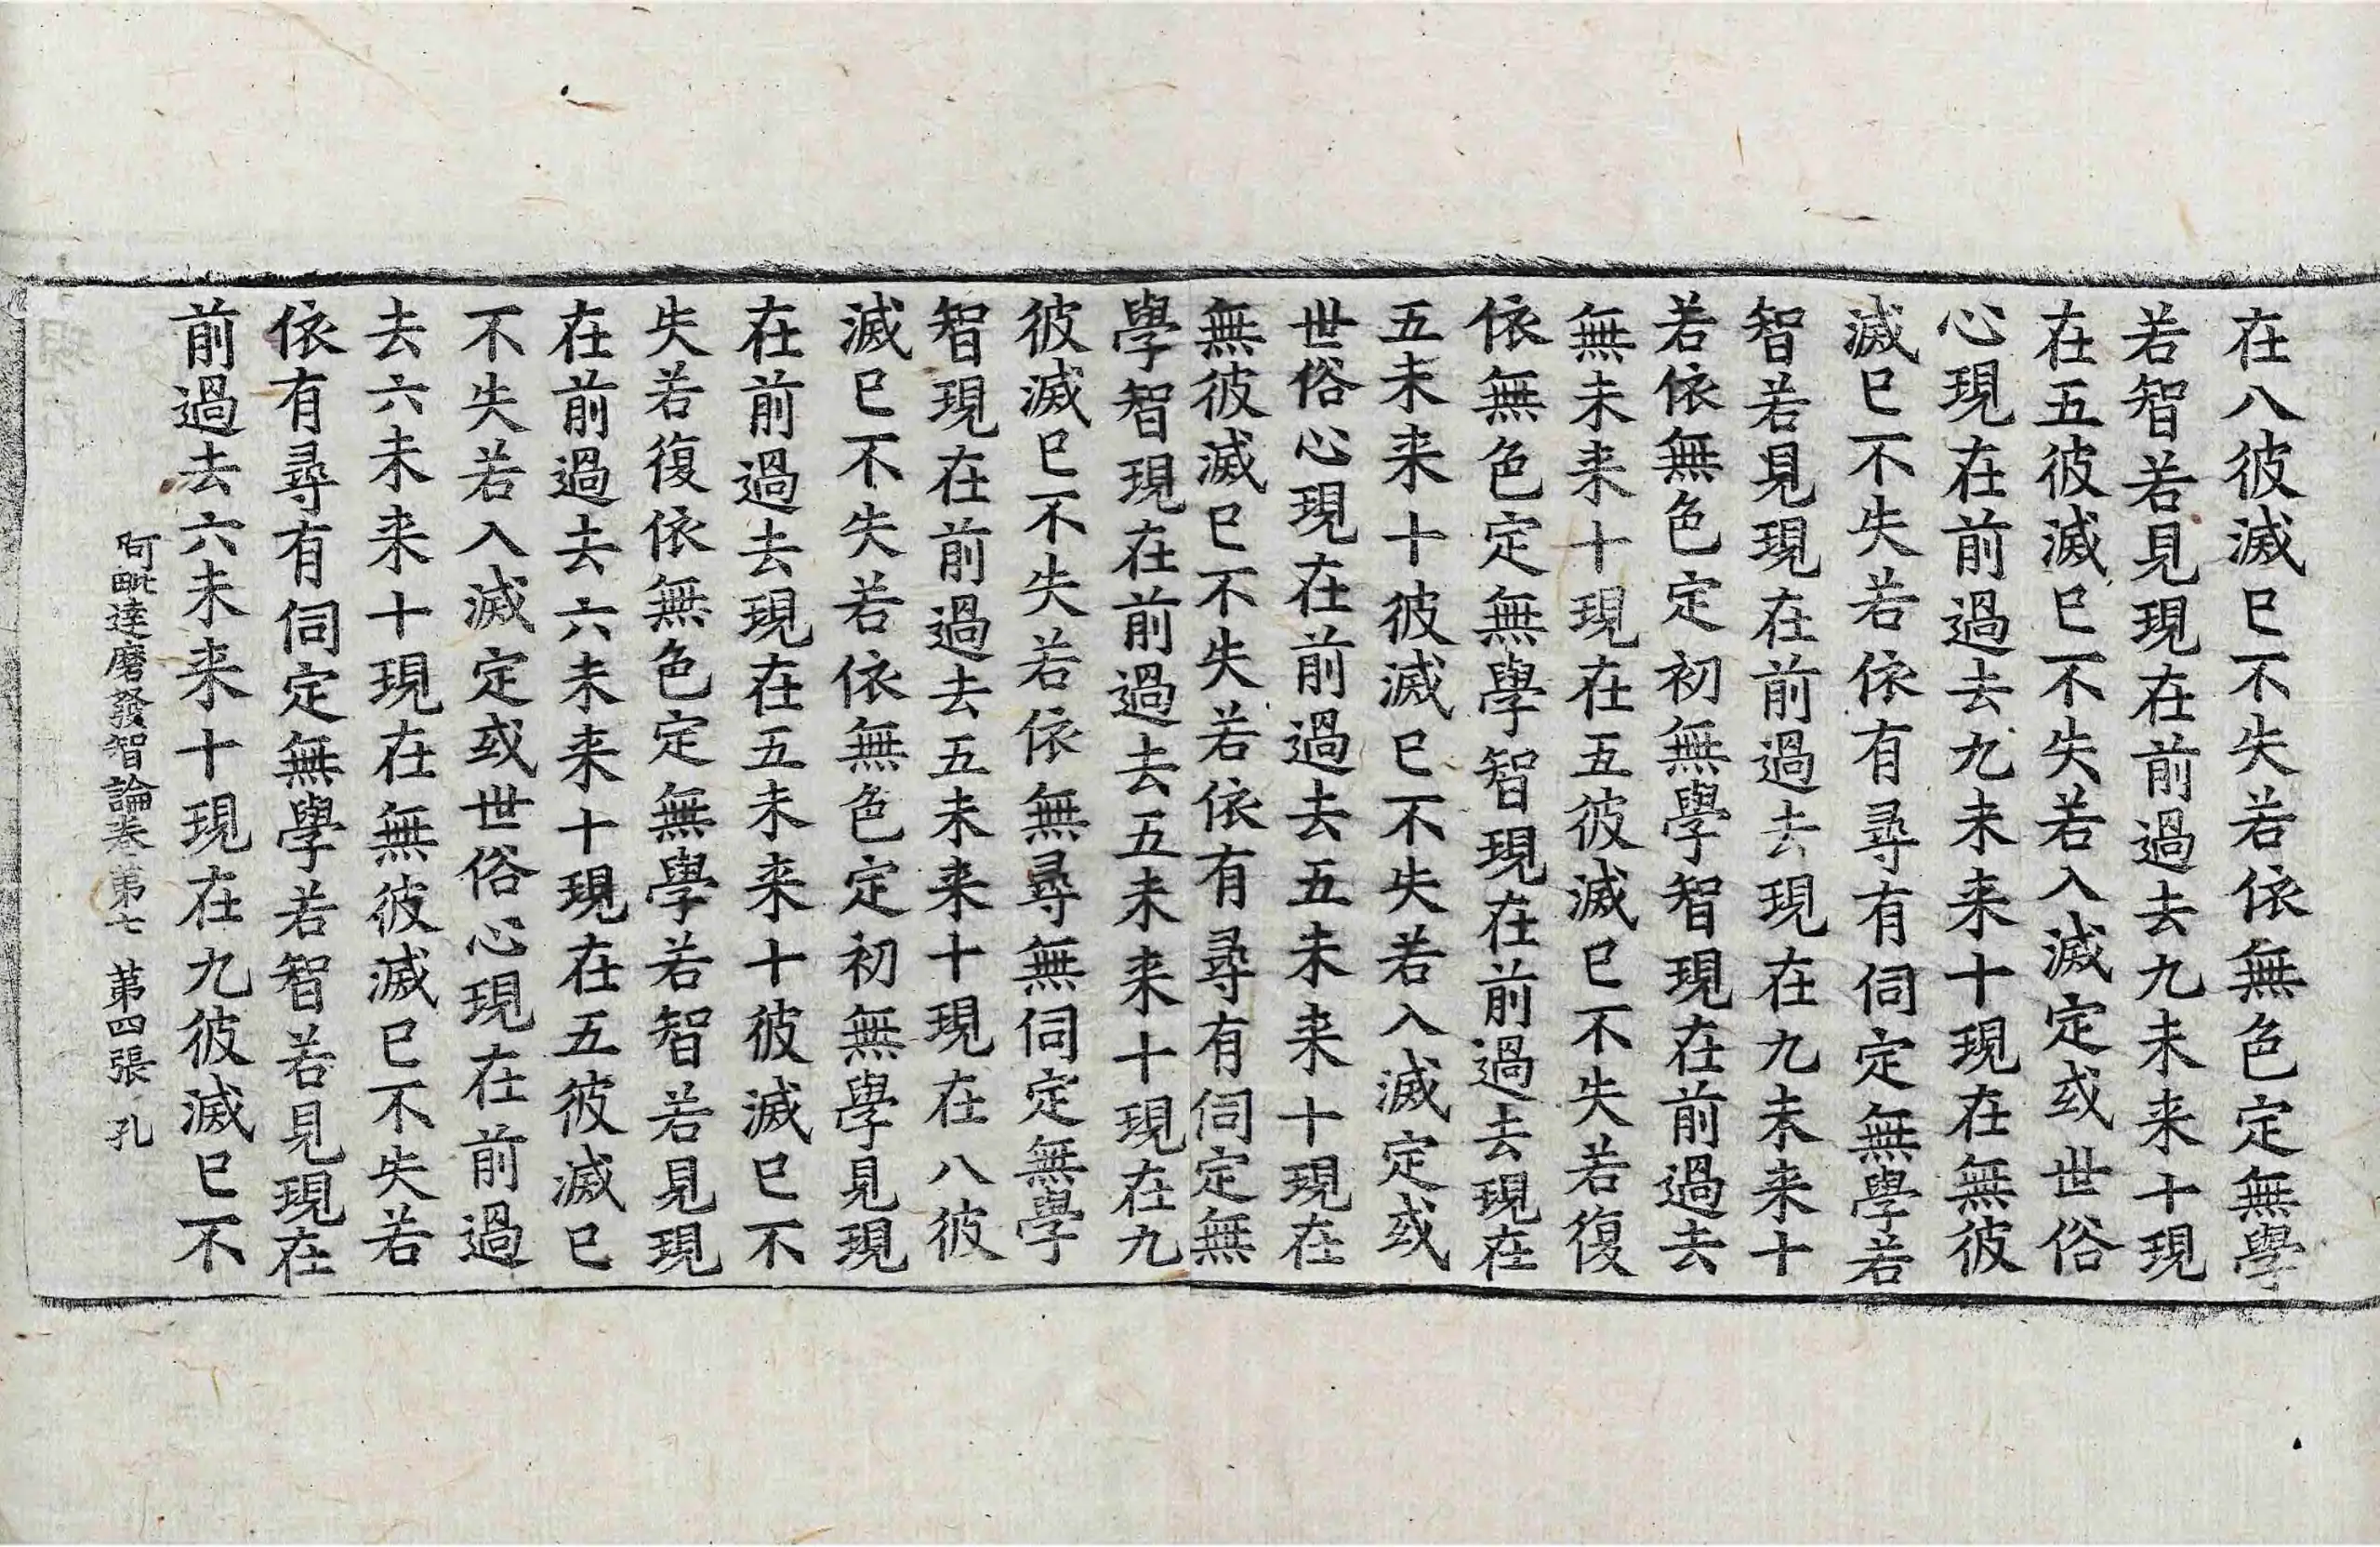 在八彼滅已不失若依無色定無學
若智若見現在前過去九未来十現
在五彼滅已不失若入滅定或世俗
心現在前過去九未来十現在無彼
滅已不失若依有尋有伺定無學若
智若見現在前過去現在九未来十
若依無色定初無學智現在前過去
無未来十現在五彼滅已不失若復
依無色定無學智現在前過去現在
五未来十彼滅已不失若入滅定或
世俗心現在前過去五未来十現在
無彼滅已不失若依有尋有伺定無
學智現在前過去五未来十現在九
彼滅已不失若依無尋無伺定無學
智現在前過去五未来十現在八彼
滅已不失若依無色定初無學見現
在前過去現在五未来十彼滅已不
失若復依無色定無學若智若見現
在前過去六未来十現在五彼滅已
不失若入滅定或世俗心現在前過
去六未来十現在無彼滅已不失若
依有尋有伺定無學若智若見現在
前過去六未来十現在九彼滅已不
阿毗達磨發智論卷第七 第四張 孔